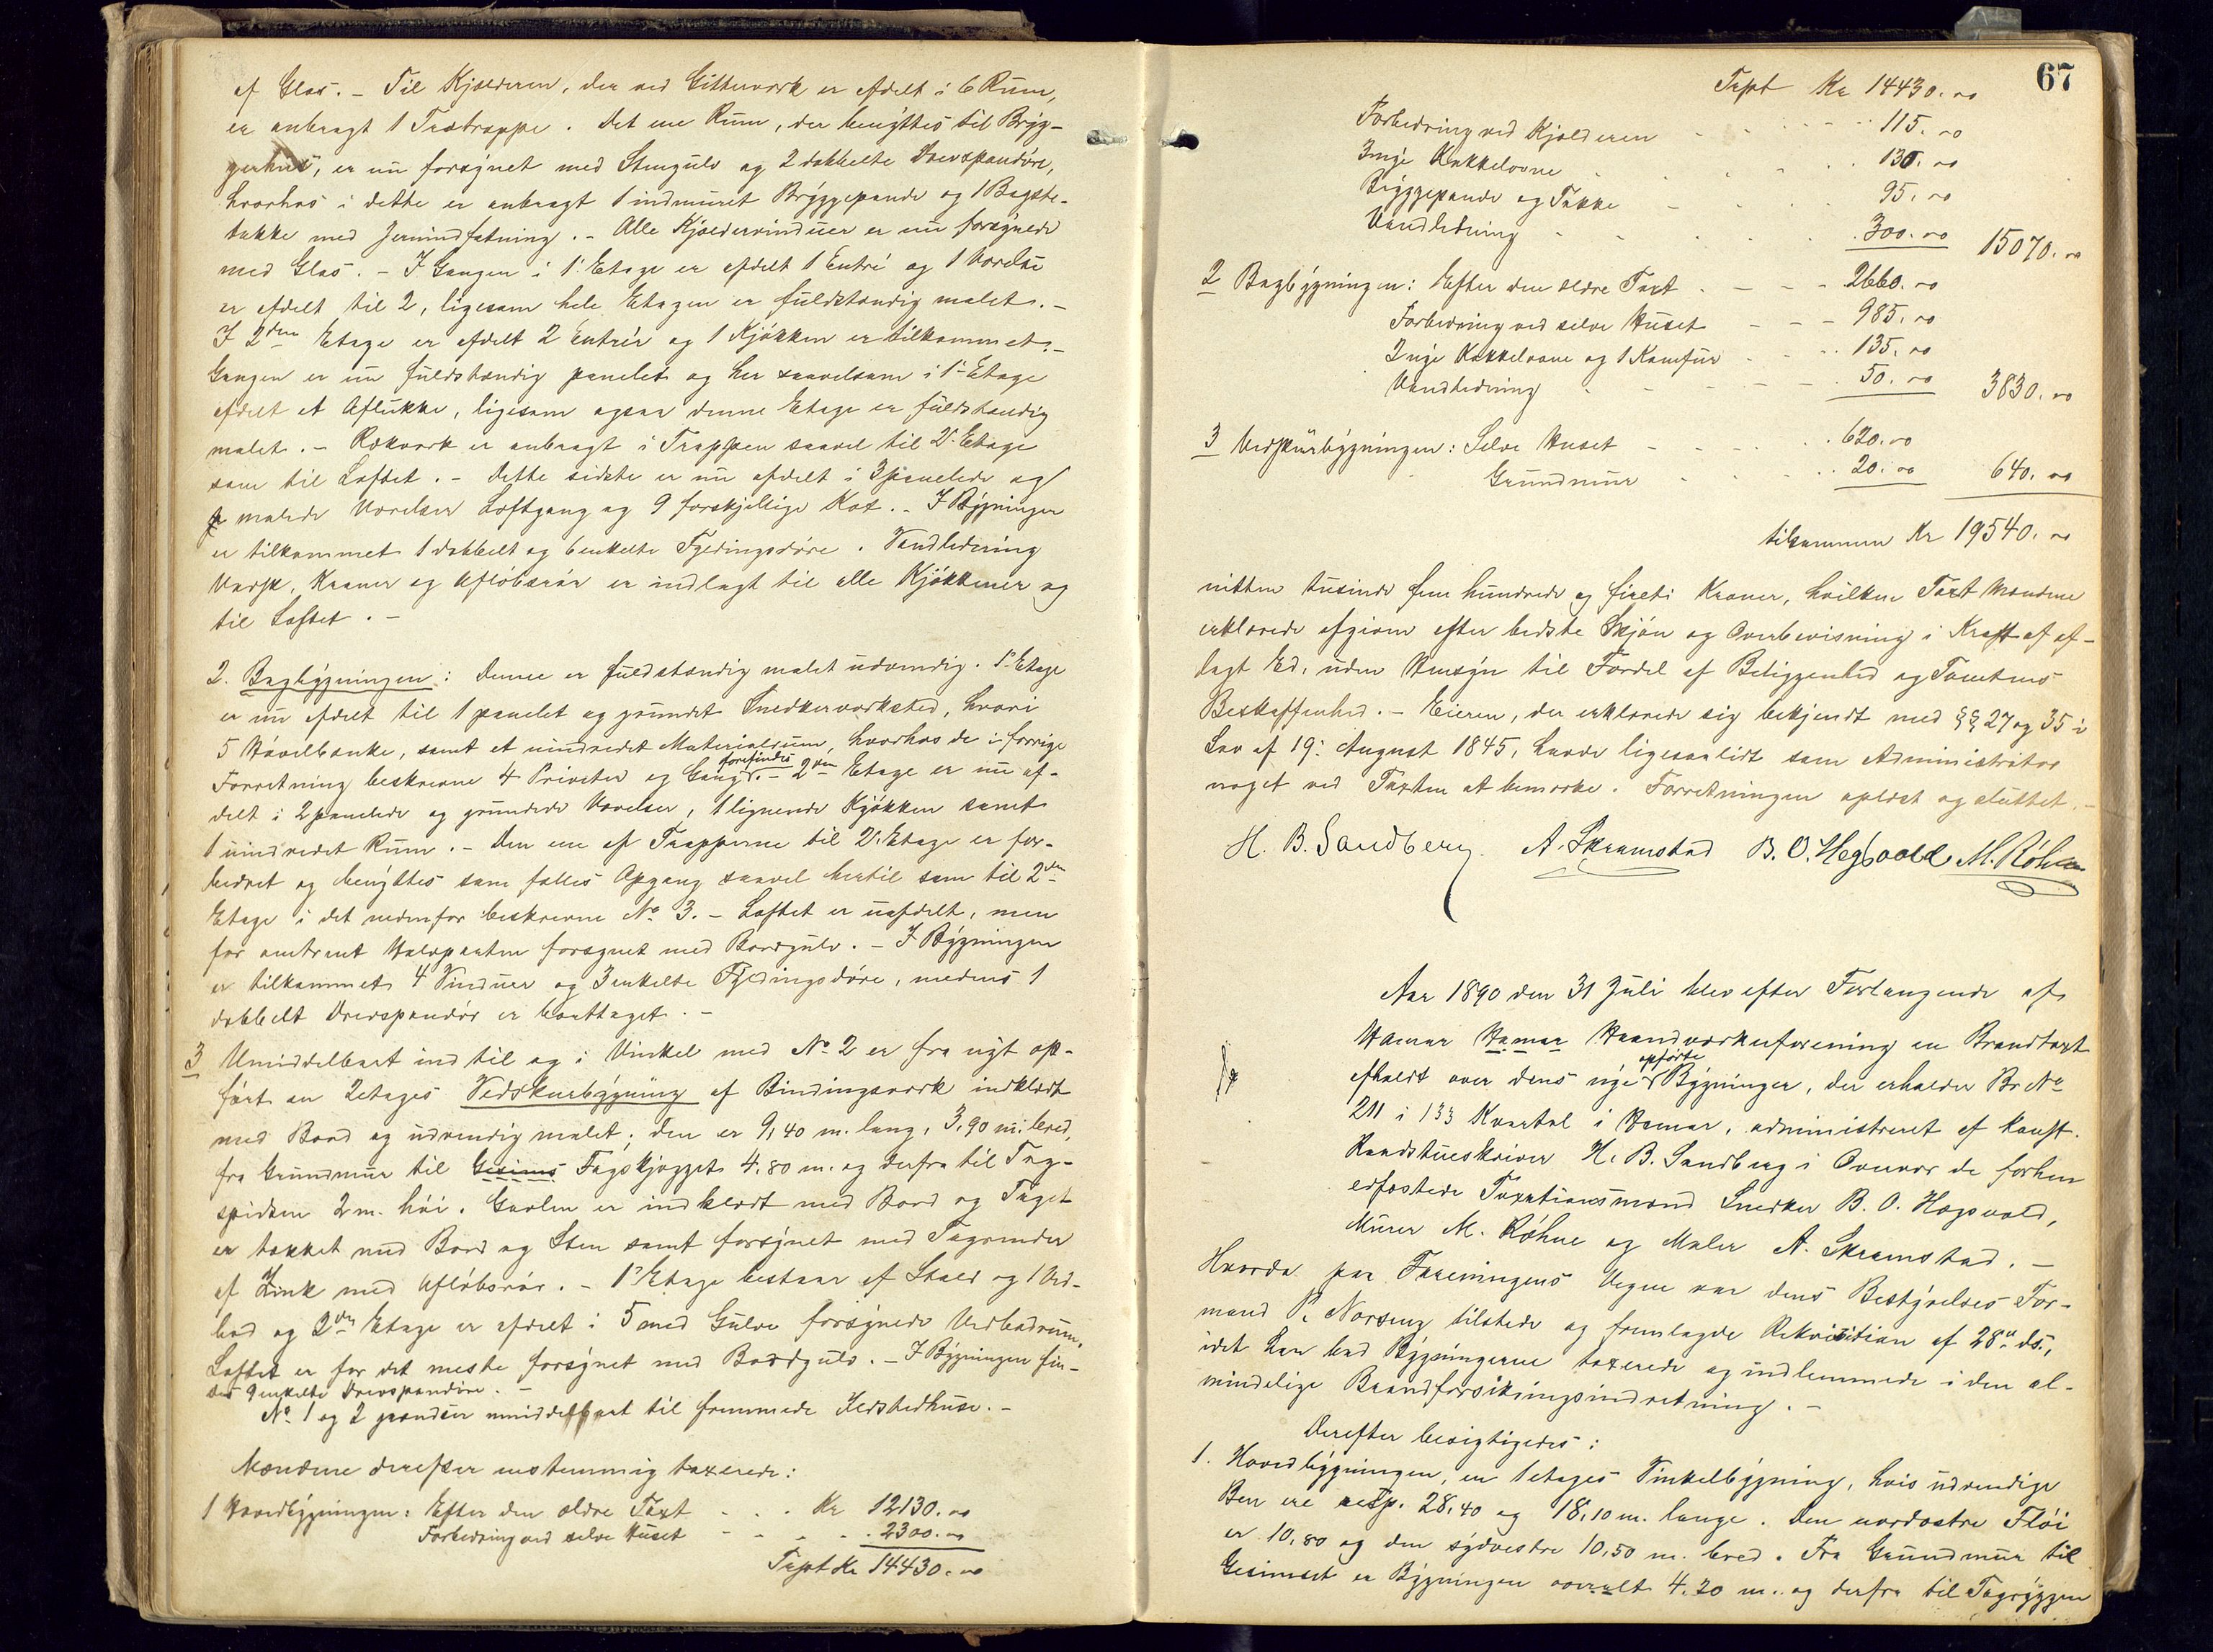 af Glas. – Til Kjælderen, der ved Gitterværk er afdelt i 6 Rum,
er anbragt 1 Trætrappe. Det ene Rum, der benyttes til Bryg-
gerhus, er nu forsynet med Stengulv og 2 dobbelte Drevspandøre,
hvorhos i dette er anbragt 1 indmuret Bryggepande og 1 Bagste-
takke med Jernindfatning. – Alle Kjældervinduer er nu forsynede
med Glas. – I Gangen i 1' Etage er afdelt 1 Entré og 1 Værelse
er afdelt til 2, ligesom hele Etagen er fuldstændig malet. –
I 2den Etage er afdelt 2 Entréer og 1 Kjøkken er tilkommet. –
Gangen er nu fuldstændig panelet og her saavelsom i 1' Etage
afdelt et Aflukke, ligesom ogsaa denne Etage er fuldstændig
malet. – Rækværk er anbragt i Trappen saavel til 2' Etage
som til Loftet. – Dette sidste er nu afdelt i 3 panelede og
malede Værelser Loftgang og 9 forskjellige Kot. – I Bygningen
er tilkommet 1 dobbelt og 6 enkelte Fyldingsdøre. Vandledning
Vask, Kraner og Afløbsrør er indlagt til alle Kjøkkener og
til Loftet. –
2. Bagbygningen: Denne er fuldstændig malet udvendig. 1' Etage
er nu afdelt til 1 panelet og grundet Snedkerværksted, hvori
5 Høvelbænke, samt et uindredet Materialrum, hvorhos de i forrige
Forretning beskrevne 4 Priveter og Gang forefindes. – 2den Etage er nu af-
delt i 2 panelede og grundede Værelser, 1 lignende Kjøkken samt
1 uindredet Rum. – Den ene af Trapperne til 2' Etage er for-
bedret og benyttes som fælles Opgang saavel hertil som til 2den
Etage i det nedenfor beskrevne No 3. – Loftet er uafdelt, men
for omtrent Halvparten forsynet med Bordgulv. – I Bygningen
er tilkommet 4 Vinduer og 3 enkelte Fyldingsdøre, medens 1
dobbelt Drevspandør er borttaget. –
3 Umiddelbart ind til og i Vinkel med No 2 er fra nyt op-
ført en 2etages Vedskurbygning af Bindingsværk indklædt
med Bord og udvendig malet; den er 9,40 m. lang, 3,90 m. bred,
fra Grundmur til Gesims Tagskjægget 4,80 m. og derfra til Tag-
spidsen 2 m. høi. Gavlen er indklædt med Bord og Taget
er tækket med Bord og Sten samt forsynet med Tagrender
af Zink med Afløbsrør. – 1' Etage bestaar af Stald og 1 Ved-
bod og 2den Etage er afdelt i 5 med Gulve forsynede Vedbodrum,
Loftet er for det meste forsynet med Bordgulv. – I Bygningen fin-
des 9 enkelte Drevspandøre. –
No 1 og 2 grændser umiddelbart til fremmede Ildstedhuse. –
Mændene derefter enstemmig taxerede:
1 Hovedbygningen: Efter den ældre Taxt - - . Kr 12130.00
Forbedring ved selve Huset - - - . . 2300.00
Tspt Kr 14430.00
67
Tspt Kr 14430.00
Forbedring ved Kjælderen - - - - - 115.00
3 nye Kakkelovne - - - - 130.00
Bryggepande og Takke - - - 95.00
Vandledning - - - - . 300.00 15070.00
2 Bagbygningen: Efter den ældre Taxt . - - - 2660.00
Forbedring ved selve Huset - - - 985.00
2 nye Kakkelovne og 1 Komfur - - . 135.00
Vandledning - - - - 50.00 3830.00
3 Vedskurbygningen: Selve Huset - - - . 620.00
Grundmur - - - . . 20.00 640.00
tilsammen Kr 19540.00
nitten tusinde fem hundrede og fireti Kroner, hvilken Taxt Mændene
erklærede afgiven efter bedste Skjøn og Overbevisning i Kraft af af-
lagt Ed, uden Hensyn til Fordel af Beliggenhed og Tomtens
Beskaffenhed. – Eieren, der erklærede sig bekjendt med §§ 27 og 35 i
Lov af 19' August 1845, havde ligesaalidt som Administrator
noget ved Taxten at bemærke. Forretningen oplæst og sluttet. –
H. B. Sandberg. A. Skramstad B. O. Hegsvold M. Røhne
Aar 1890 den 31 Juli blev efter Forlangende af
Hamar Hamar Haandværkerforening en Brandtaxt
afholdt over dens nye opførte Bygninger, der erholder Br No
211 i 133 Kvartal i Hamar, administreret af konst.
Raadstueskriver H. B. Sandberg i Overvær de forhen
edfæstede Taxationsmænd Snedker B. O. Hegsvold,
Murer M. Røhne og Maler A. Skramstad. –
Hvorda paa Foreningens Vegne var dens Bestyrelses For-
mand P. Norseng tilstede og fremlagde Rekvisition af 28' ds.,
idet han bad Bygningerne taxerede og indlemmede i den al-
mindelige Brandforsikringsindretning. –
Derefter besigtigedes:
1. Hovedbygningen, en 1etages Vinkelbygning, hvis udvendige
Ben ere resp. 28,40 og 18,10 m. lange. Den nordøstre Fløi
er 10,80 og den sydvestre 10,50 m. bred. Fra Grundmur til
Gesimset er Bygningen overalt 4,20 m. og derfra til Tagryggen